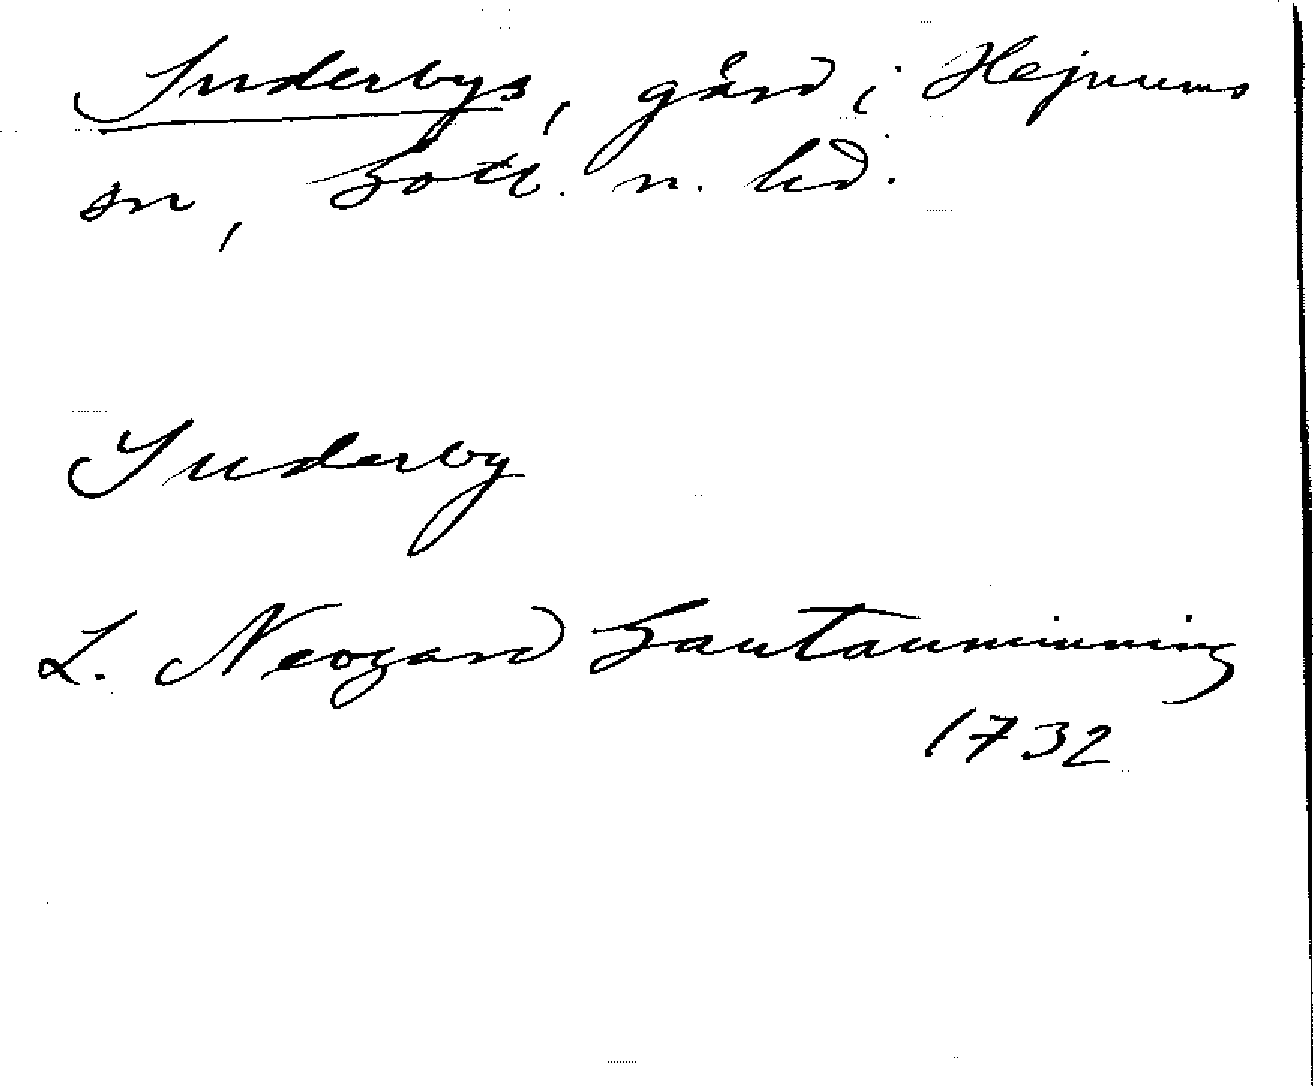 Suderbys, gård i Hejnums
sn, Gotl. n. hd.
Suderby
L. Neogard Gautauminning
1732